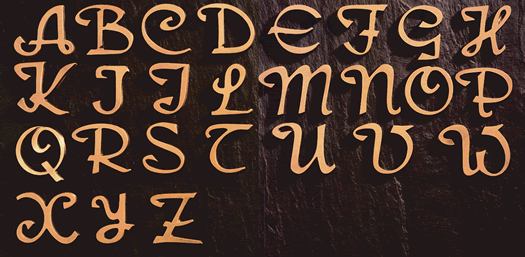 A B C D E F G H
K I J L M N O P
Q R S T U V W
X Y Z